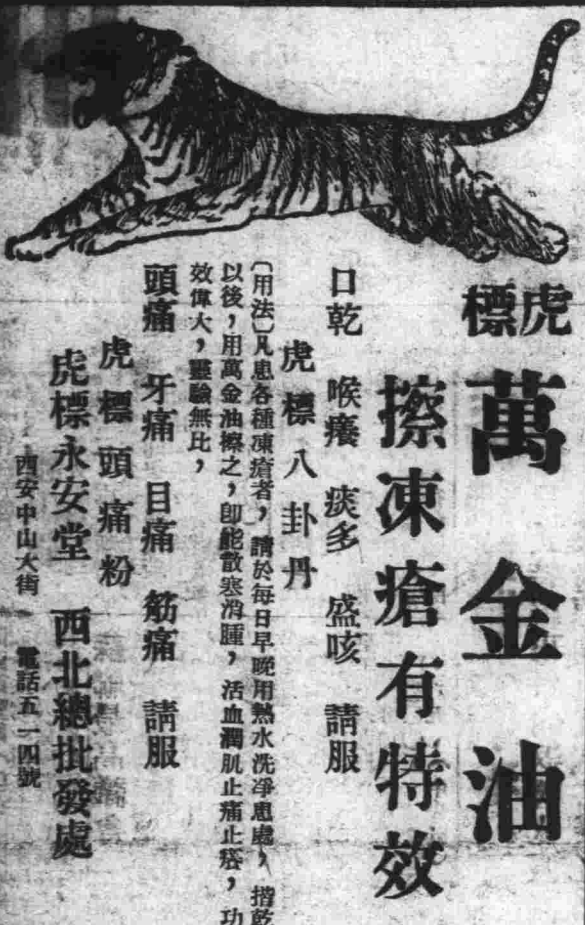 虎標
萬金油
擦凍瘡有特效
口乾 喉癢 痰多 盛咳 請服
虎標八卦丹
〔用法〕凡患各種凍瘡者,請於每日早晚用熱水洗淨患處,揩乾
以後,用萬金油擦之,卽能散寒消腫,活血潤肌止痛止癢,功
效偉大,靈驗無比,
頭痛 牙痛 目痛 筋痛 請服
虎標頭痛粉
虎標永安堂 西北總批發處
西安中山大街 電話五一四號